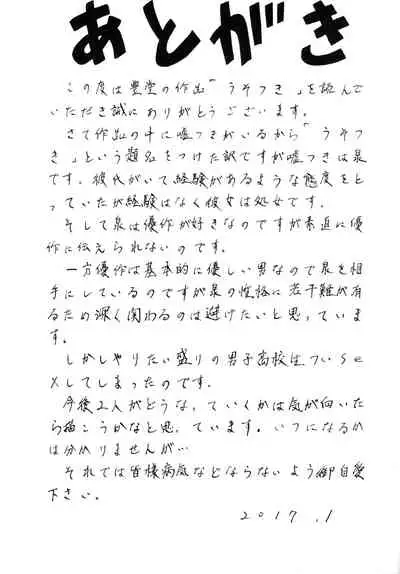 あとがき
この度は豊堂の作品「うそつき」を読んで
いただき誠にありがとうございます。
さて作品の中に嘘つきがいるから「うそつ
き」という題名をつけた訳ですが嘘つきは泉
です。彼氏がいて経験があるような態度をと
っていたが経験はなく彼女は処女です。
そして泉は優作が好きなのですが素直に優
作に伝えられないのです。
一方優作は基本的に優しい男なので泉を相
手にしているのですが泉の性格に若干難が有
るため深く関わるのは避けたいと思っていま
す。
しかしやりたい盛りの男子高校生ついSe
xしてしまったのです。
今後2人がどうなっていくかは気が向いた
ら描こうかなと思っています。いつになるか
は分かりませんが…
それでは皆様病気などならないよう御自愛
下さい。
2017.1